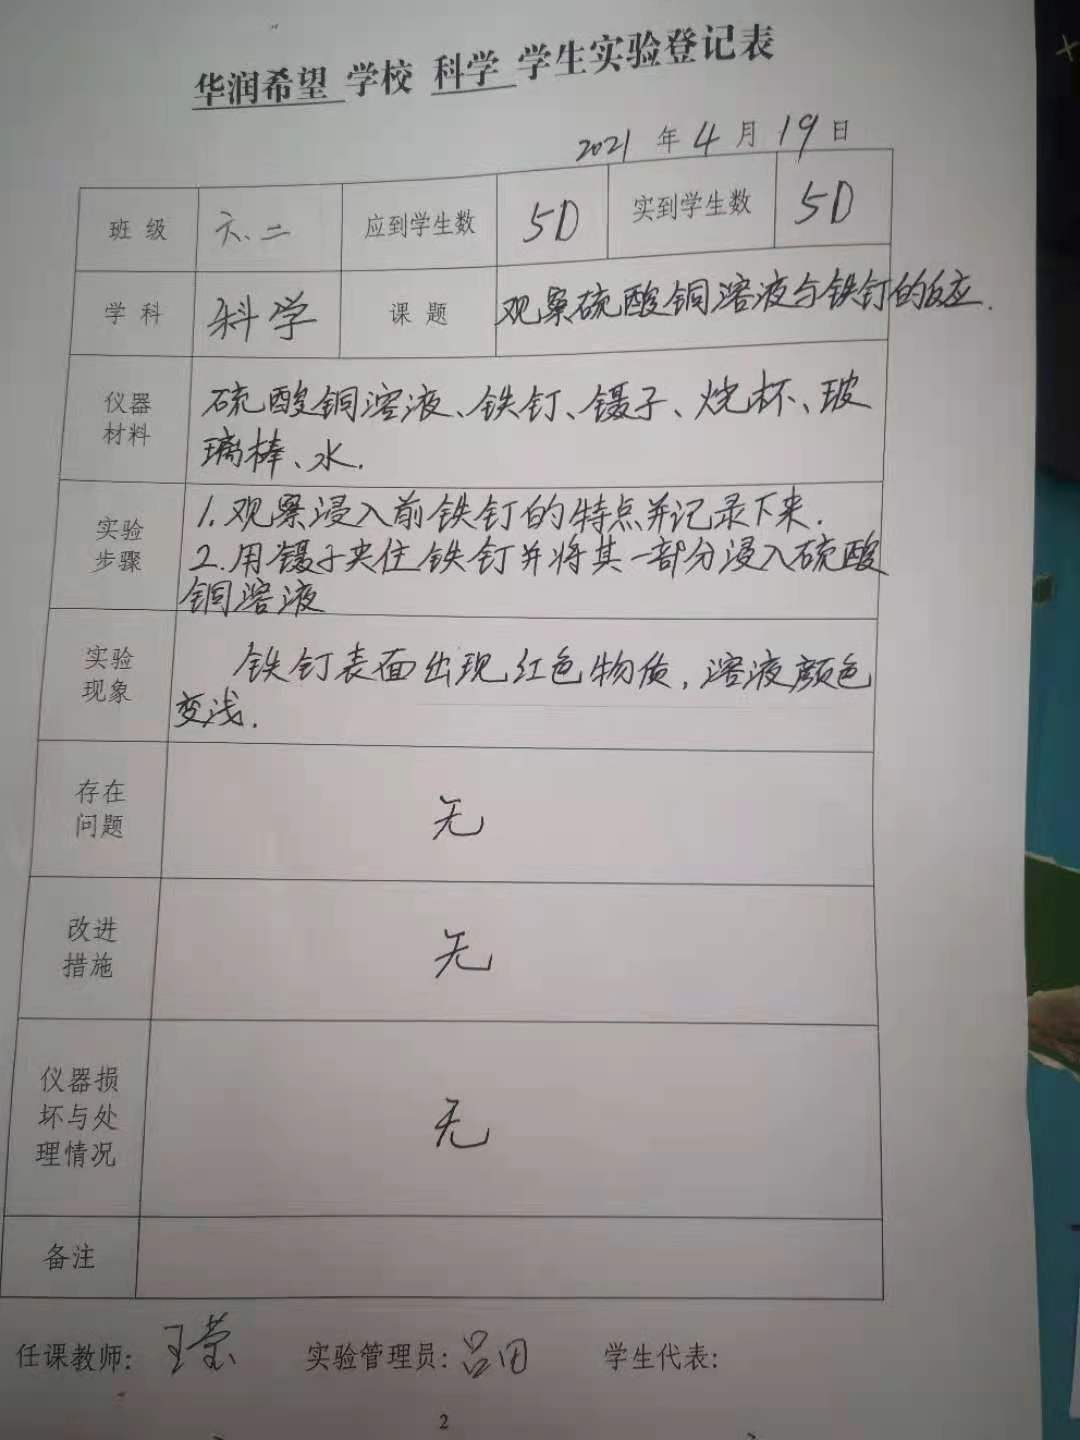 华润希望 学校 科学 学生实验登记表
2021 年 4 月 19 日
班 级 六.二 应到学生数 50 实到学生数 50
学 科 科学 课 题 观察硫酸铜溶液与铁钉的反应.
仪器
材料
硫酸铜溶液、铁钉、镊子、烧杯、玻
璃棒、水.
实验
步骤
1.观察浸入前铁钉的特点并记录下来.
2.用镊子夹住铁钉并将其一部分浸入硫酸
铜溶液
实验
现象
铁钉表面出现红色物质,溶液颜色
变浅.
存在
问题
无
改进
措施
无
仪器损
坏与处
理情况
无
备注
任课教师: 王莹 实验管理员: 吕田 学生代表:
2